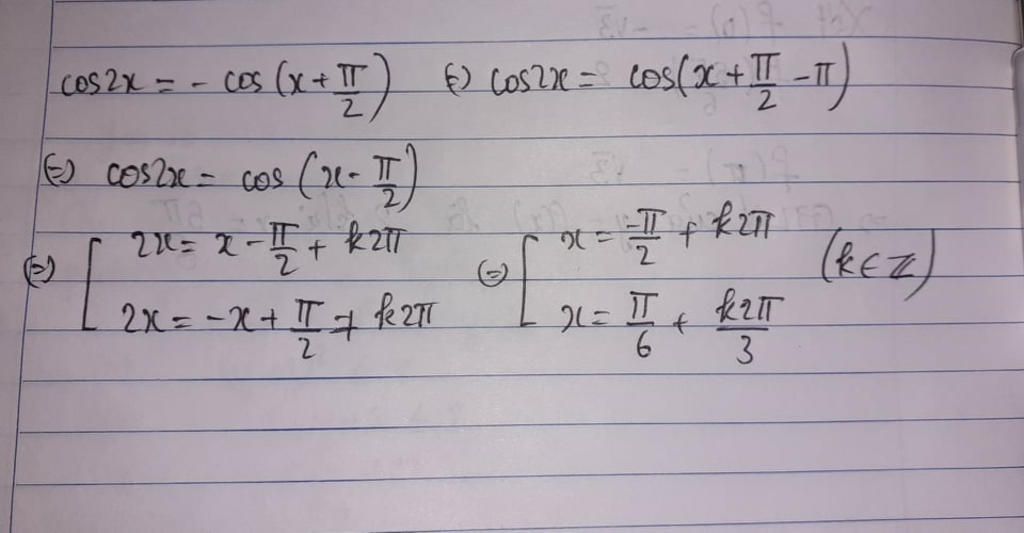 cos2x = - cos (x + π/2) (=) cos2x = cos(x + π/2 - π)
(=) cos2x = cos (x - π/2)
(=) [ 2x = x - π/2 + k2π (=) [ x = -π/2 + k2π (k ∈ Z)
2x = -x + π/2 + k2π x = π/6 + k2π/3